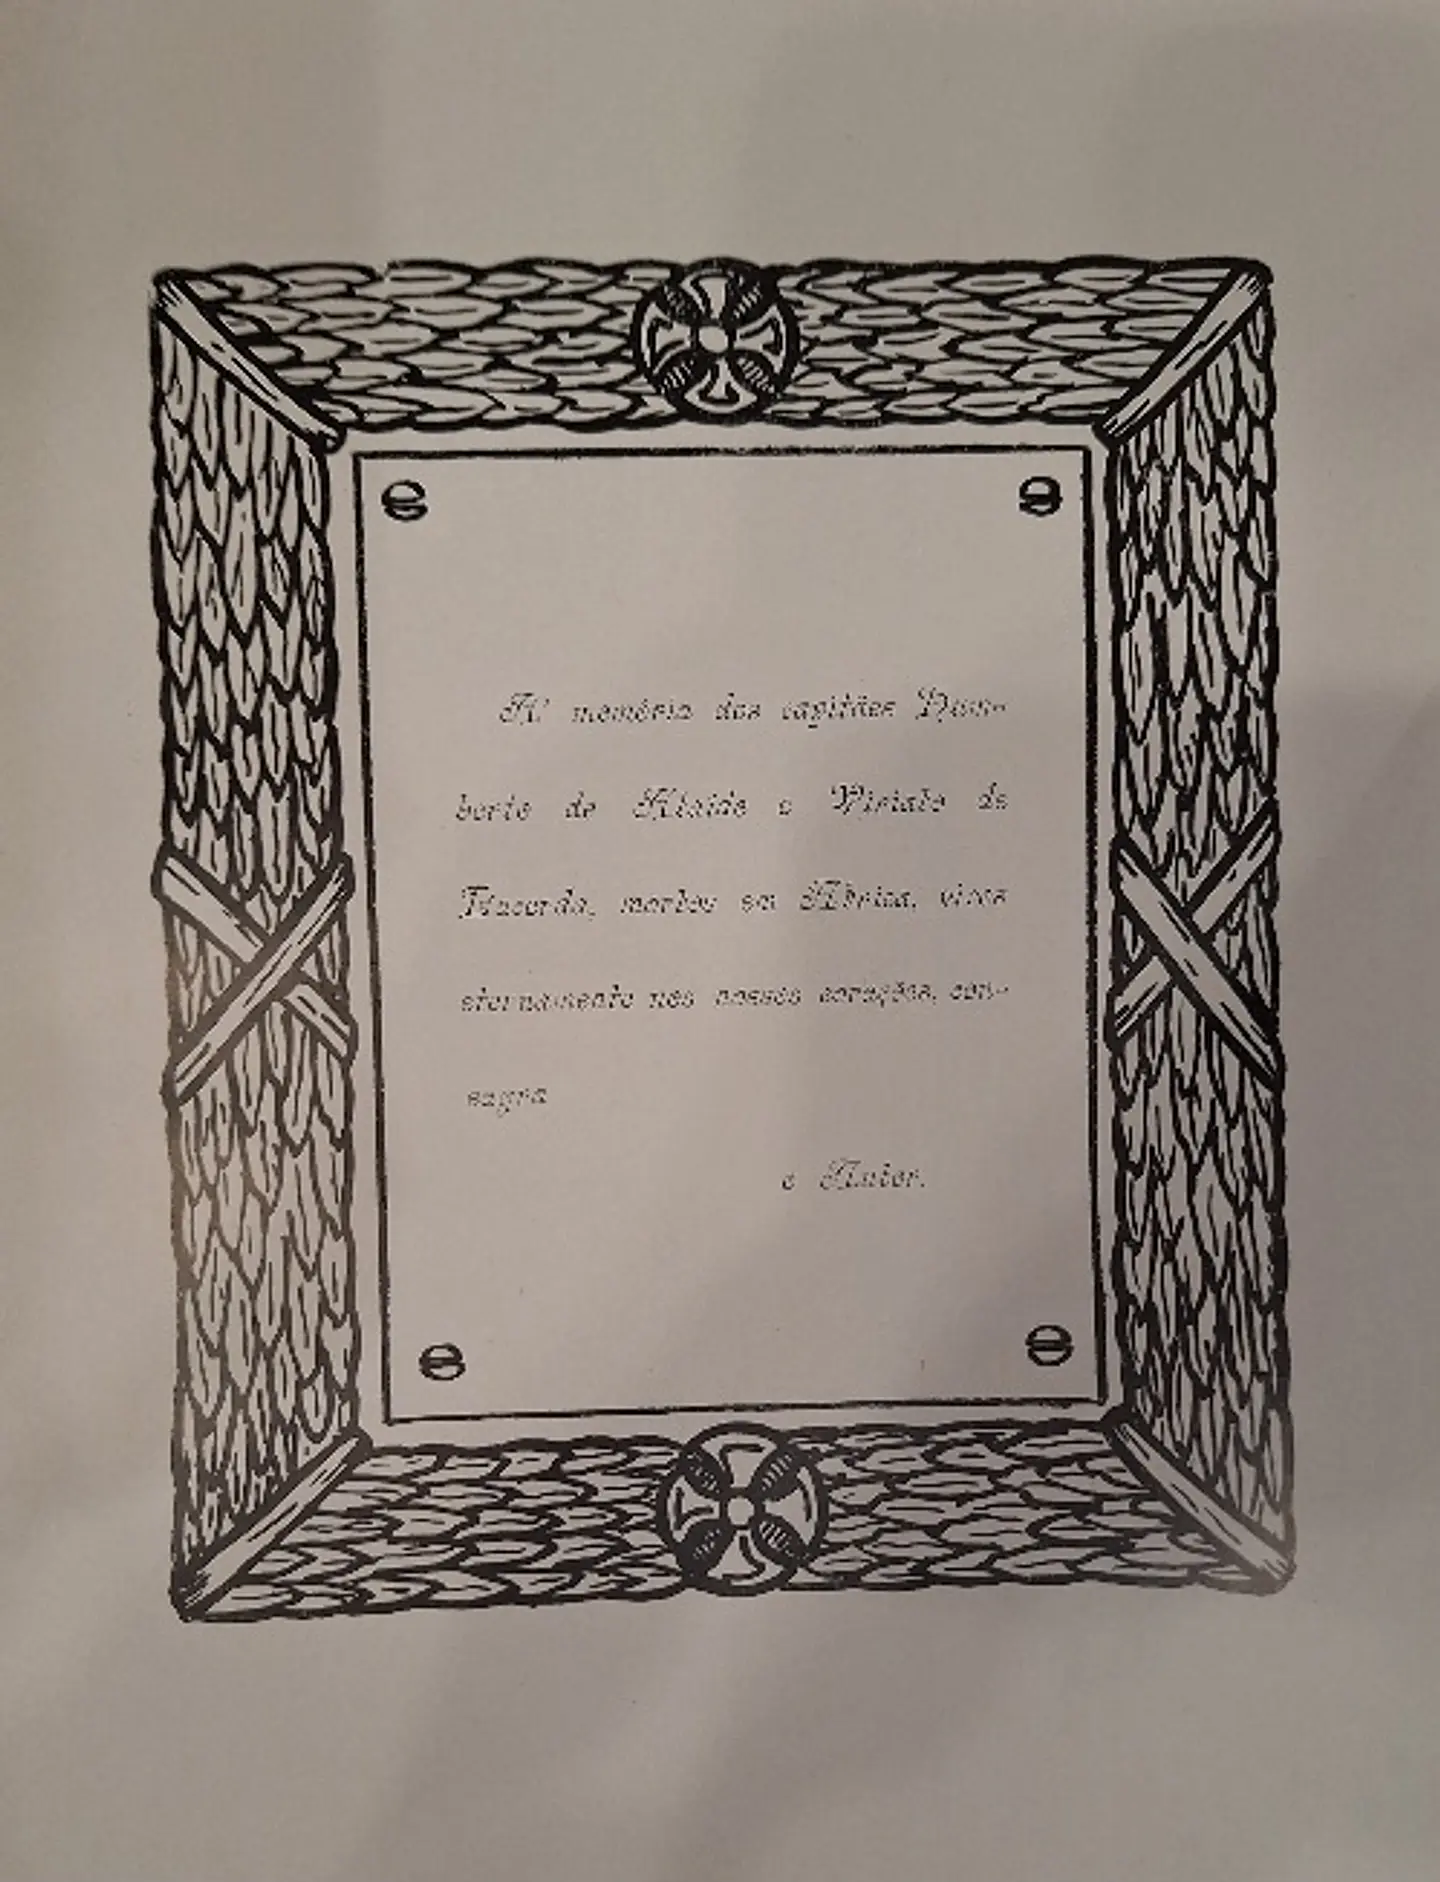 A' memória dos capitães Hum-
berto de Ataide e Viriato de
Lacerda, mortos em Africa, vivos
eternamente nos nossos corações, con-
sagra
o Autor.